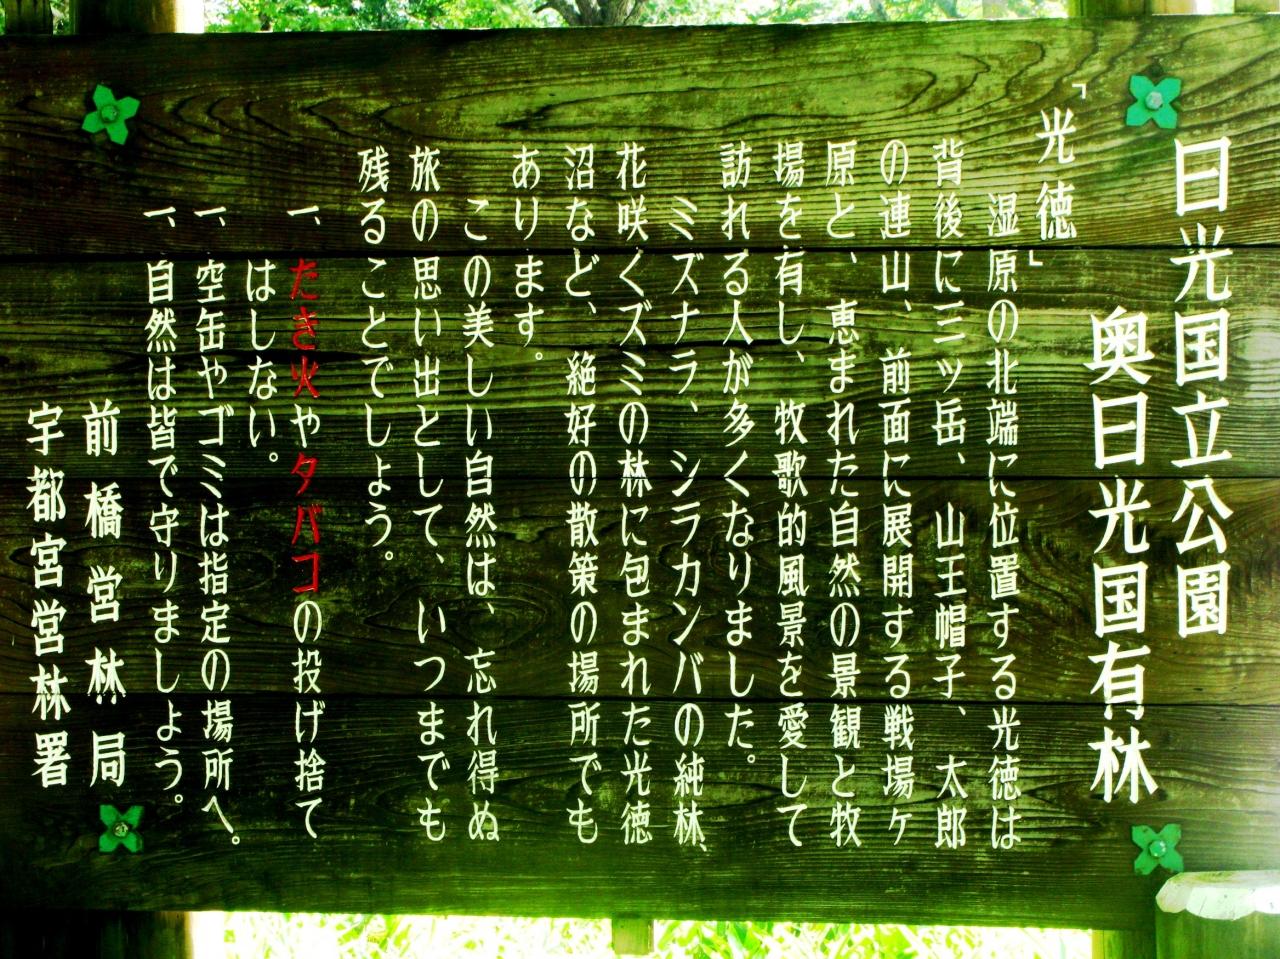 日光国立公園
奥日光国有林
「光徳」
湿原の北端に位置する光徳は
背後に三ッ岳、山王帽子、太郎
の連山、前面に展開する戦場ヶ
原と、恵まれた自然の景観と牧
場を有し、牧歌的風景を愛して
訪れる人が多くなりました。
ミズナラ、シラカンバの純林、
花咲くズミの林に包まれた光徳
沼など、絶好の散策の場所でも
あります。
この美しい自然は、忘れ得ぬ
旅の思い出として、いつまでも
残ることでしょう。
一、たき火やタバコの投げ捨て
はしない。
一、空缶やゴミは指定の場所へ。
一、自然は皆で守りましょう。
前橋営林局
宇都宮営林署